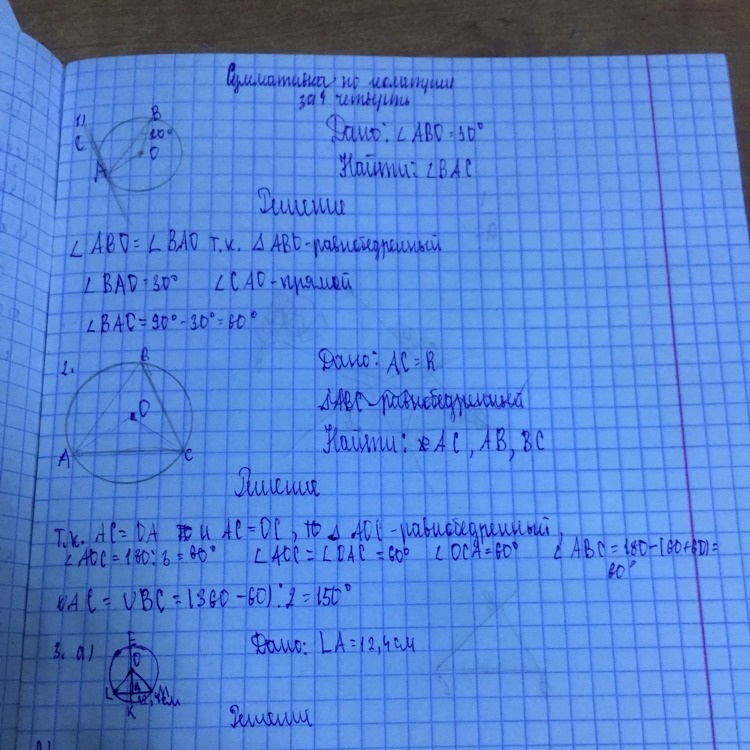 Суммативка по геометрии
за 4 четверть
1.
B
30°
C
O
A
Дано: ∠ABO = 30°
Найти: ∠BAC
Решение
∠ABO = ∠BAO т.к. △ABO - равнобедренный
∠BAO = 30° ∠CAO - прямой
∠BAC = 90° - 30° = 60°
2.
B
O
A
C
Дано: AC = R
△ABC - равнобедренный
Найти: AC, AB, BC
Решение
т.к. AC = OA и AC = OC, то △AOC - равнобедренный,
∠AOC = 180 : 3 = 60° ∠AOC = ∠OAC = 60° ∠OCA = 60° ∠ABC = 180 - (60+60) =
60°
∪AC = ∪BC = (360 - 60) : 2 = 150°
3. а)
E
O
L
A
12,4см
K
Дано: LA = 12,4 см
Решение